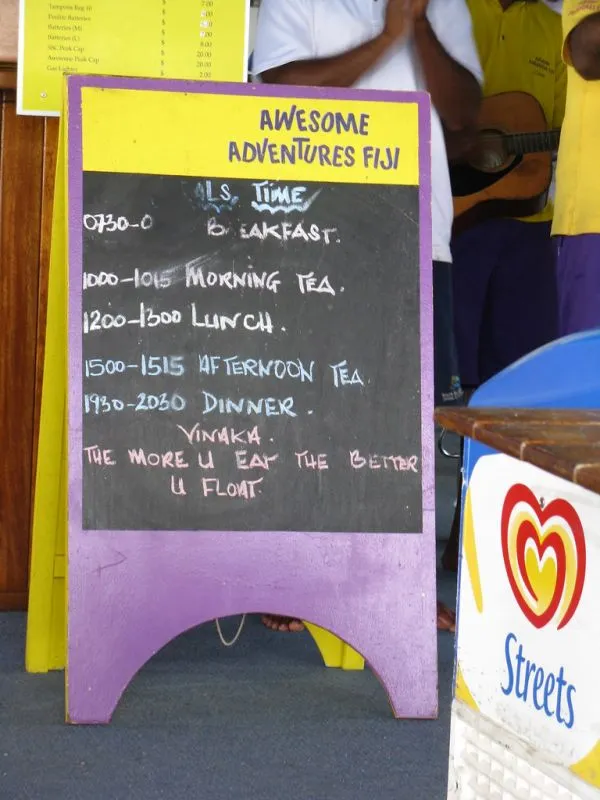 Tampons Reg 10 $ 7.00
Poolite Batteries $
Batteries (M) $
Batteries (L) $
SSC Peak Cap $ 8.00
Awesome Peak Cap $ 20.00
Gas Lighter $ 2.00
AWESOME
ADVENTURES FIJI
LS, TIME
0730-0 B EAKFAST.
1000-1015 MORNING TEA.
1200-1300 LUNCH.
1500-1515 AFTERNOON TEA
1930-2030 DINNER.
VINAKA.
THE MORE U EAT THE BETTER
U FLOAT
Streets